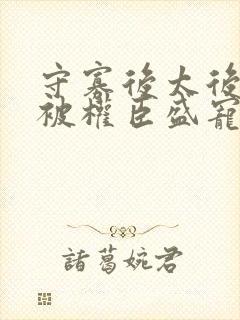 守寡後太後
被權臣盛寵
諸葛婉君